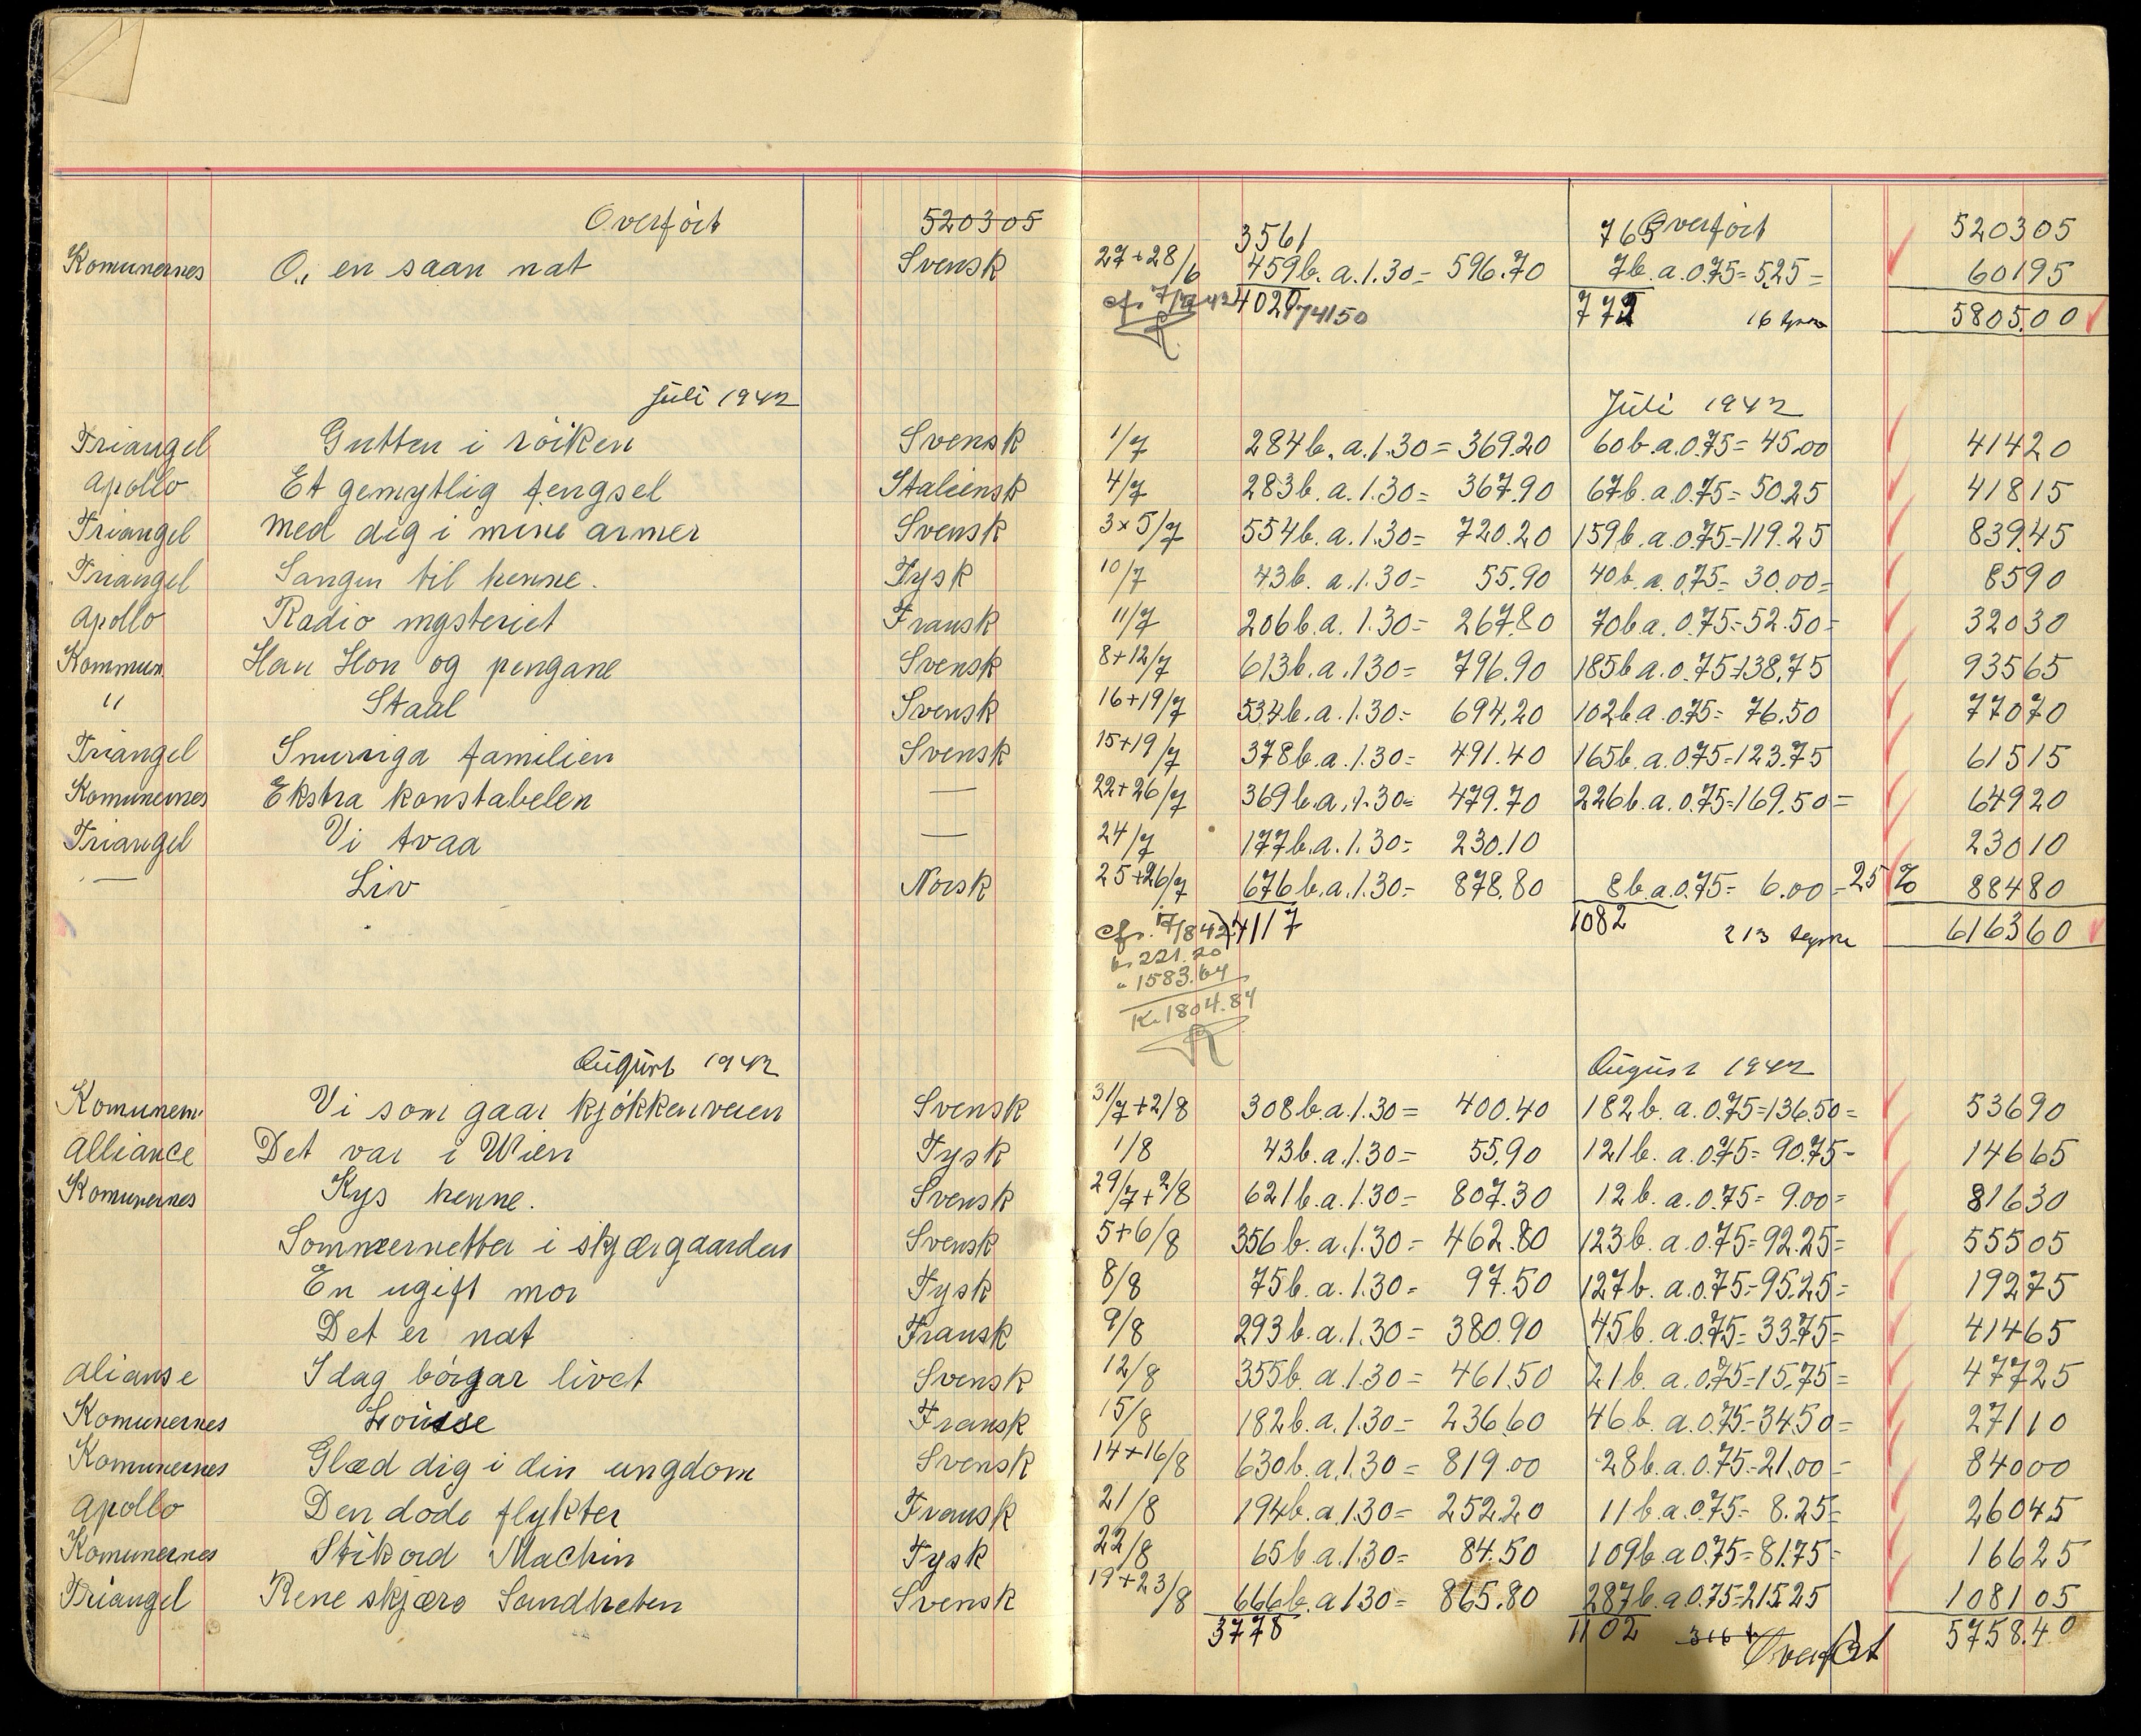 Overført 520305 3561 765 Overført 520305
Komunernes O, en saan nat Svensk 27+28/6 459 b. a. 1.30 = 596.70 7 b. a. 0.75 = 5,25 = 60195
4020 74150 772 5805.00
Juli 1942 Juli 1942
Triangel Gutten i röiken Svensk 1/7 284 b. a. 1.30 = 369.20 60 b. a. 0.75 = 45.00 41420
Apollo Et gemytlig fengsel Italiensk 4/7 283 b. a. 1.30 = 367.90 67 b. a. 0.75 = 50.25 41815
Triangel Med dig i mine armer Svensk 3 x 5/7 554 b. a. 1.30 = 720.20 159 b. a. 0.75 = 119.25 839.45
Triangel Sangen til henne. Tysk 10/7 43 b. a. 1.30 = 55.90 40 b. a. 0.75 = 30.00 = 8590
Apollo Radio mysteriet Fransk 11/7 206 b. a. 1.30 = 267.80 70 b a. 0.75 = 52.50 = 32030
Kommun Han Hon og pengane Svensk 8+12/7 613 b. a. 1.30 = 796.90 185 b a. 0.75 = 138.75 93565
" Staal Svensk 16+19/7 534 b. a. 1.30 = 694.20 102 b a. 0.75 = 76.50 77070
Triangel Snurriga familien Svensk 15+19/7 378 b. a. 1.30 = 491.40 165 b. a. 0.75 = 123.75 61515
Komunernes Ekstra konstabelen — 22+26/7 369 b. a. 1.30 = 479.70 226 b. a. 0.75 = 169.50 = 64920
Triangel Vi tvaa — 24/7 177 b. a. 1.30 = 230.10 23010
— Liv Norsk 25+26/7 676 b. a. 1.30 = 878.80 8 b. a 0.75 = 6.00 = 25 % 88480
cfr. 17/8 42 4117 1082 616360
221.20
" 1583.64
K. 1804.84
August 1942 August 1942
Komunern. Vi som gaar kjökkenveien Svensk 31/7+2/8 308 b. a. 1.30 = 400.40 182 b. a. 0.75 = 136.50 = 53690
Alliance Det var i Wien Tysk 1/8 43 b. a. 1.30 = 55.90 121 b. a. 0.75 = 90.75 - 14665
Komunernes Kys henne. Svensk 29/7+2/8 621 b. a. 1.30 = 807.30 12 b. a. 0.75 = 9.00 = 81630
Sommernetter i skjærgaarden Svensk 5+6/8 356 b. a. 1.30 = 462.80 123 b. a. 0.75 = 92.25 = 55505
En ugift mor Tysk 8/8 75 b. a. 1.30 = 97.50 127 b. a. 0.75 = 95.25 = 19275
Det er nat Fransk 9/8 293 b. a. 1.30 = 380.90 45 b. a. 0.75 = 33.75 = 41465
Alianse I dag börgar livet Svensk 12/8 355 b. a. 1.30 = 461.50 21 b. a. 0.75 = 15.75 = 47725
Komunernes Louisse Fransk 15/8 182 b. a. 1.30 = 236.60 46 b. a. 0.75 = 34.50 = 27110
Komunernes Glæd dig i din ungdom Svensk 14+16/8 630 b. a. 1.30 = 819.00 28 b. a. 0.75 = 21.00 = 84000
Apollo Den döde flykter Fransk 21/8 194 b. a. 1.30 = 252.20 11 b a. 0.75 = 8.25 = 26045
Komunernes Stikord Machin Tysk 22/8 65 b. a 1.30 = 84.50 109 b. a 0.75 = 81.75 = 16625
Triangel Rene skjære Sandheten Svensk 19+23/8 666 b. a 1.30 = 865.80 287 b. a 0.75 = 215.25 108105
3778 1102 Overført 5758.40